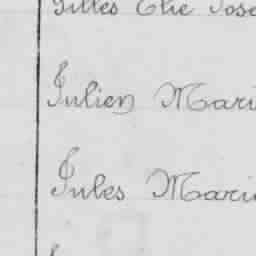 Gilles Elie Jose
Julien Mari
Jules Marie